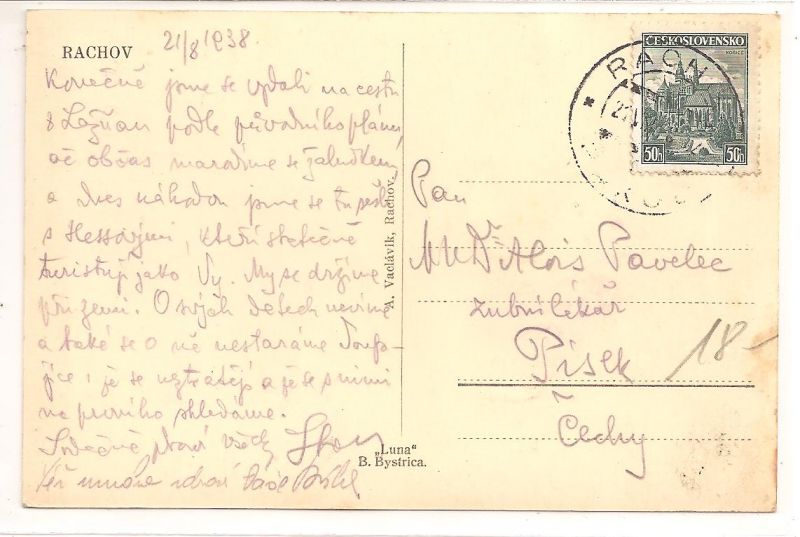 RACHOV 21/8 1938.
Konečně jsme se vydali na cestu
z Lažňan podle původního plánu,
ač občas marodíme se žaludkem
a dnes náhodou jsme se tu sešli
s Hessovými, kteří statečně
turistují jako Vy. My se držíme
při zemi. O svých dětech nevíme
a také se o ně nestaráme doufa-
jíce, že se neztratějí a že se s nimi
na prvního shledáme.
Srdečně zdraví všechny
zdraví
A. Vaclávik, Rachov.
„Luna"
B. Bystrica.
ČESKOSLOVENSKO
KOŠICE
50h 50h
Pan
MUDr Alois Pavelec
zubní lékař
Písek
Čechy
18-